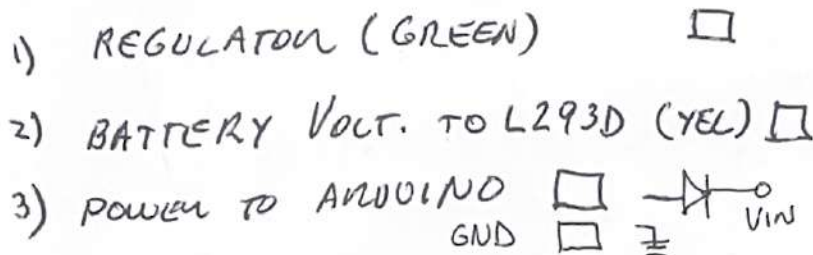 1) REGULATOR (GREEN)
2) BATTERY VOLT. TO L293D (YEL)
3) POWER TO ARDUINO
VIN
GND